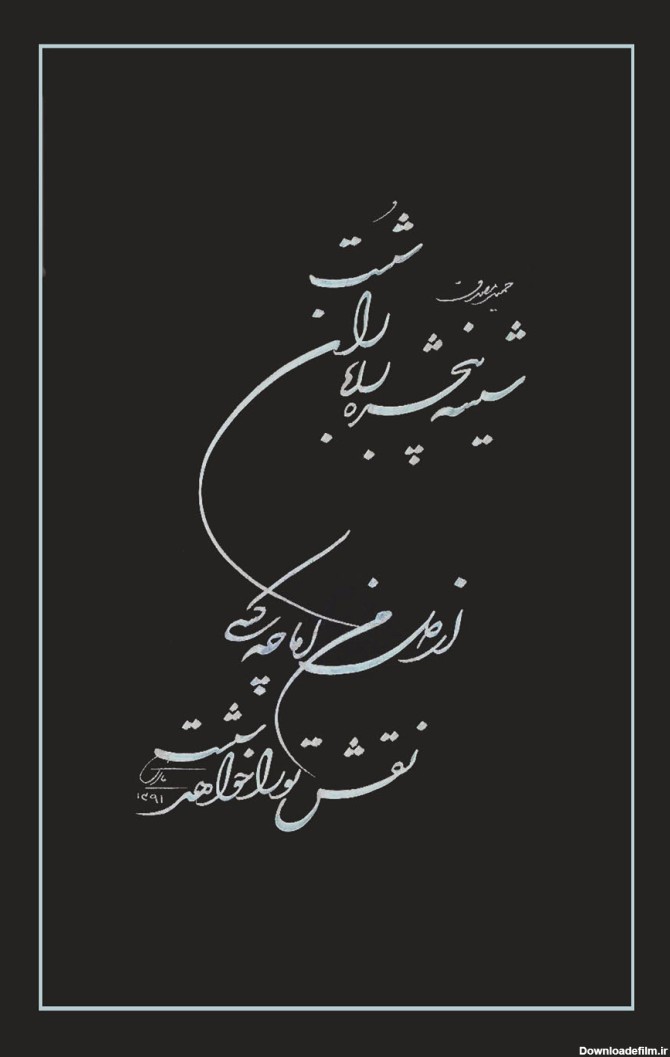 حمید مصدق
شیشه پنجره را باران شست
از دل من اما چه کسی
نقش تو را خواهد شست
۱۳۹۱
Downloadefilm.ir